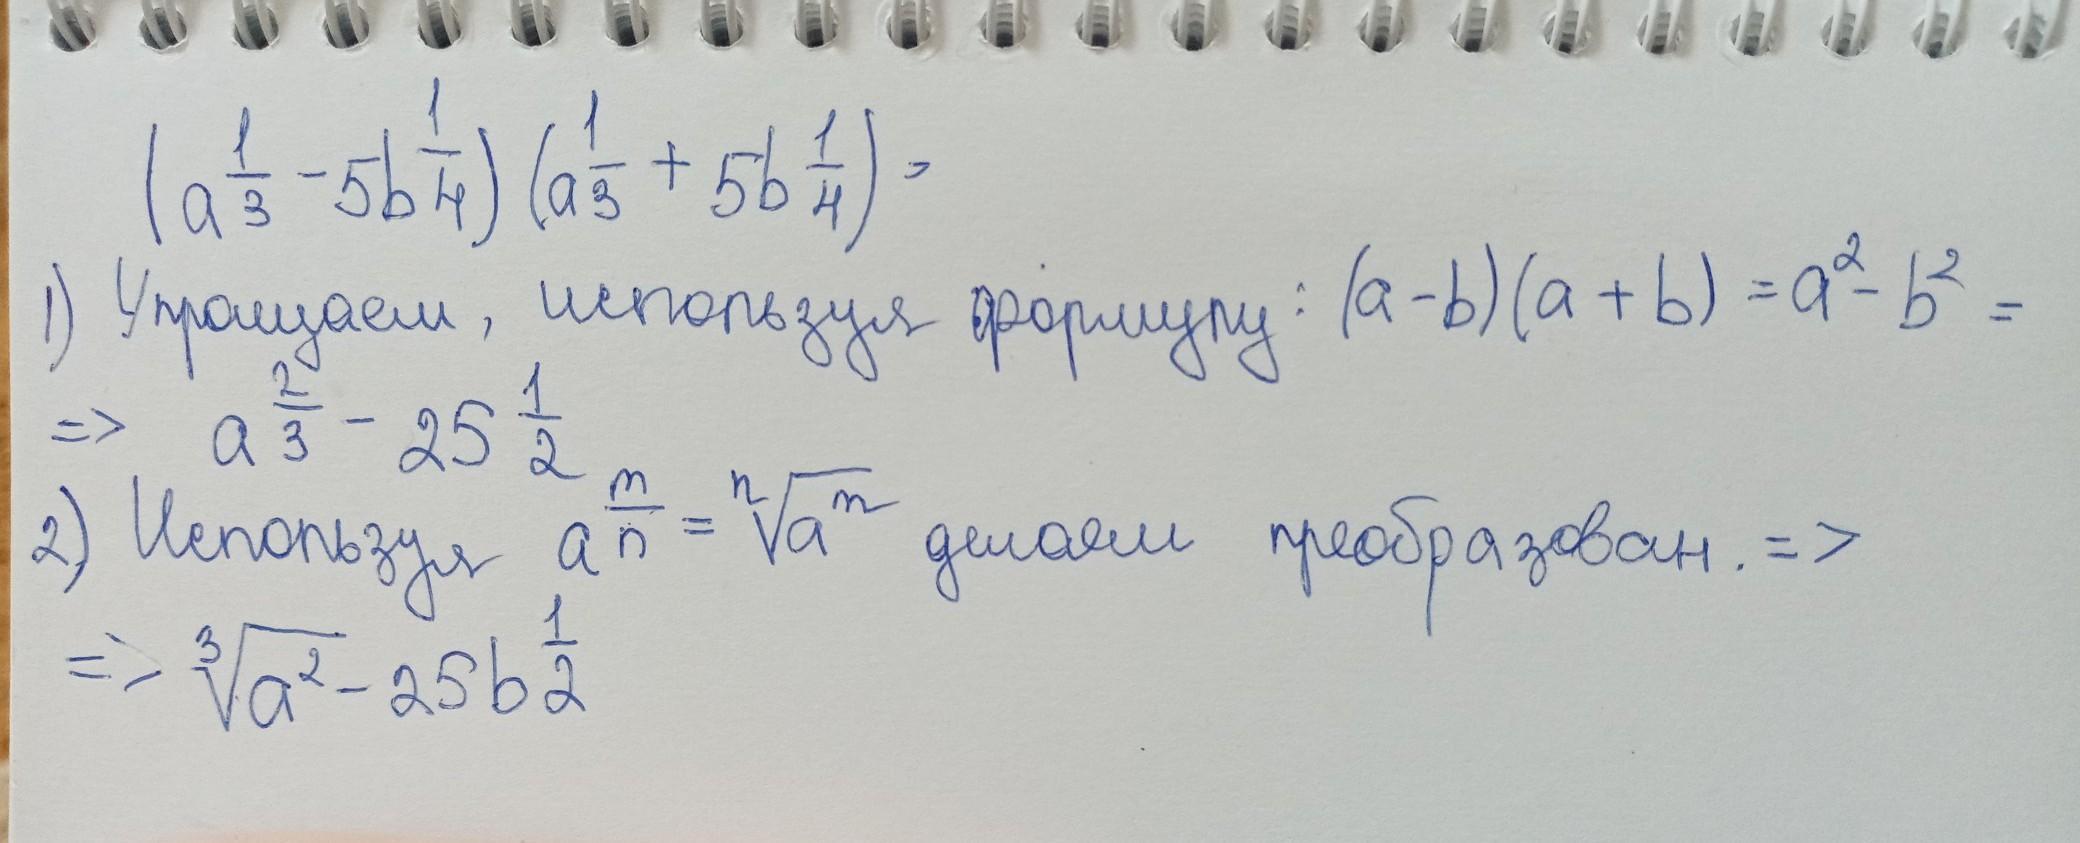 (a^{1/3} - 5b^{1/4}) (a^{1/3} + 5b^{1/4}) =
1) Упрощаем, используя формулу: (a - b)(a + b) = a² - b² =
=> a^{2/3} - 25^{1/2}
2) Используя a^{m/n} = ⁿ√(a^m) делаем преобразован. =>
=> ³√(a²) - 25b^{1/2}